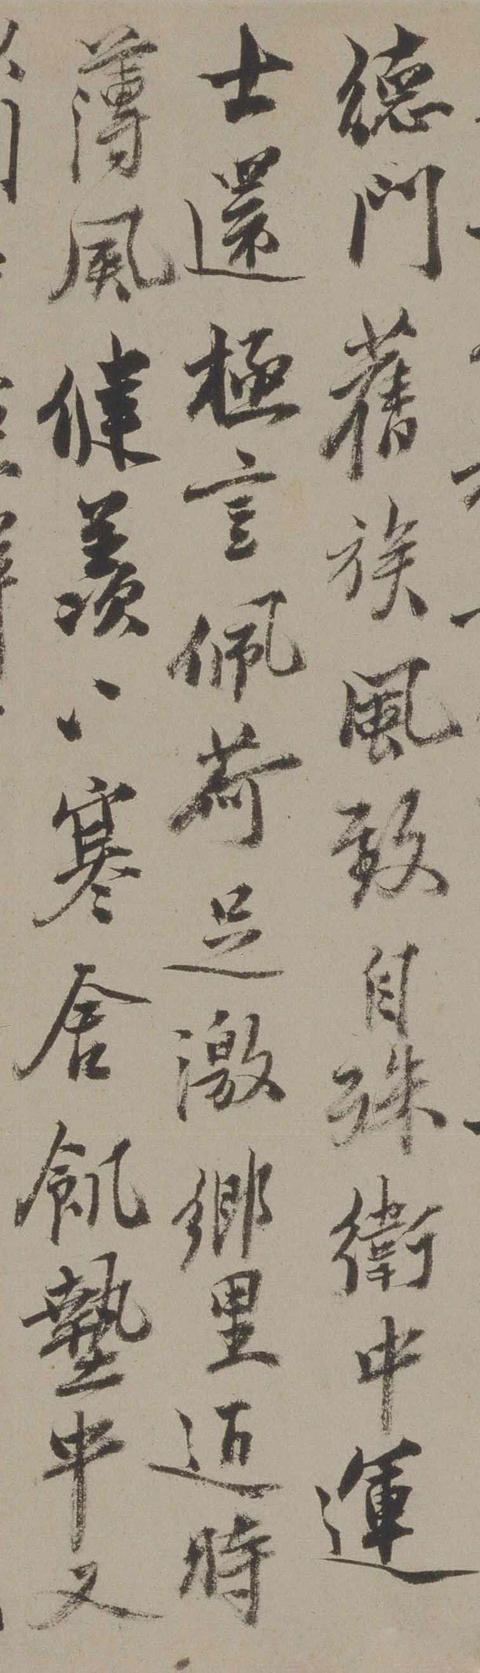 德門舊族風致自殊衛中運
士還極言佩荷足激鄉里近時
薄風健羨〻寒舍飢墊中又